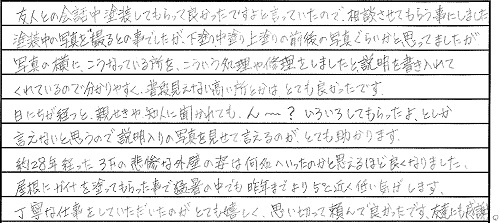 友人との会話中塗装してもらって良かったですよと言っていたので、相談させてもらう事にしました
塗装中の写真を撮るとの事でしたが、下塗り中塗り上塗りの前後の写真ぐらいかと思ってましたが
写真の横に、こうなっている所を、こういう処理や修理をしましたと説明を書き入れて
くれているので分かりやすく、普段見えない高い所とかはとても良かったです。
日にちが経つと、親せきや知人に聞かれても、ん〜?いろいろしてもらったよ、としか
言えないと思うので説明入りの写真を見せて言えるのが、とても助かります。
約28年経った3Fの悲惨な外壁の姿は何処へいったのかと思えるほど良くなりました、
屋根にガイナを塗ってもらった事で猛暑の中でも昨年までより5℃近く低い気がします。
丁寧な仕事をしていただいたのがとても嬉しく、思い切って頼んで良かったです、大変にも感謝